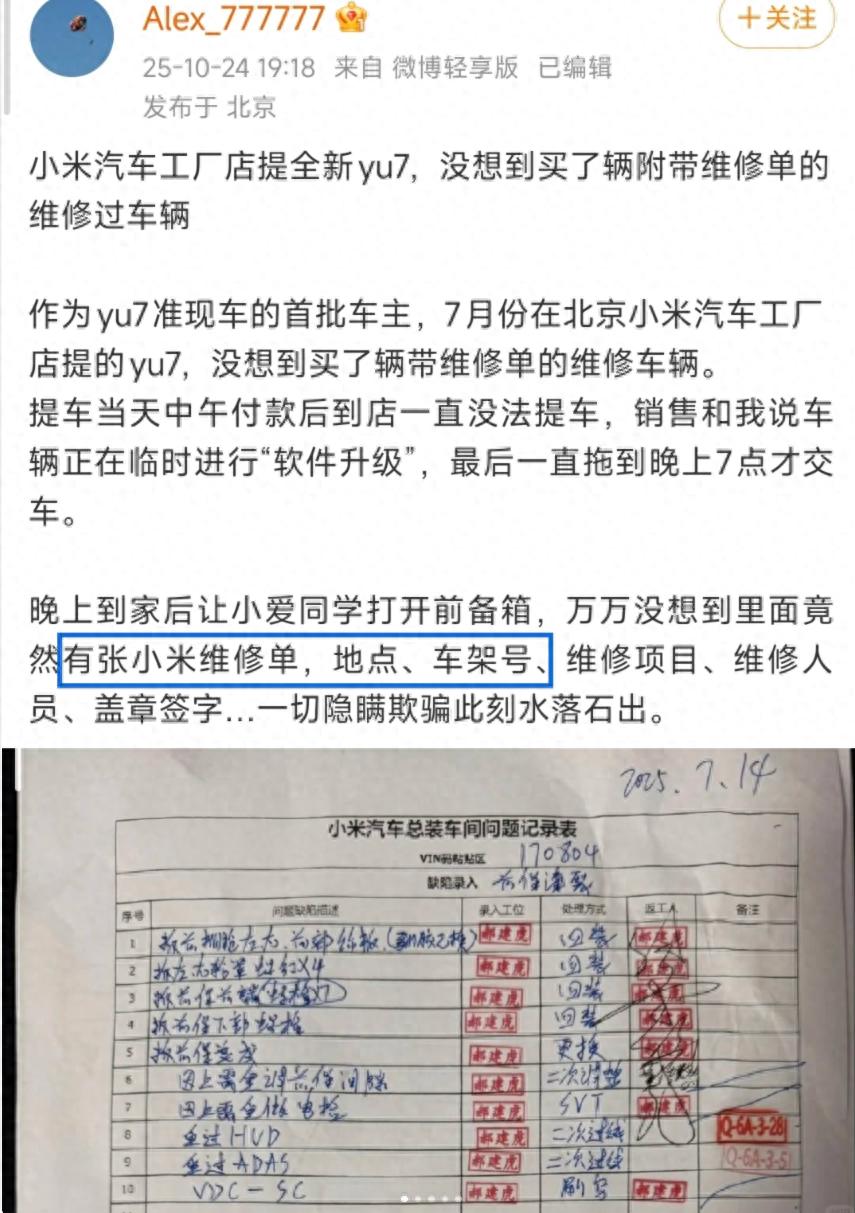 Alex_777777
+关注
25-10-24 19:18 来自 微博轻享版 已编辑
发布于 北京
小米汽车工厂店提全新yu7，没想到买了辆附带维修单的
维修过车辆
作为yu7准现车的首批车主，7月份在北京小米汽车工厂
店提的yu7，没想到买了辆带维修单的维修车辆。
提车当天中午付款后到店一直没法提车，销售和我说车
辆正在临时进行“软件升级”，最后一直拖到晚上7点才交
车。
晚上到家后让小爱同学打开前备箱，万万没想到里面竟
然有张小米维修单，地点、车架号、维修项目、维修人
员、盖章签字...一切隐瞒欺骗此刻水落石出。
2025.7.14
小米汽车总装车间问题记录表
VIN码粘贴区 170804
缺陷录入 前保
序号 问题缺陷描述 录入工位 处理方式 返工人 备注
1 拆前 郝建虎 回装 郝建虎
2 拆左 X4 郝建虎 回装 郝建虎
3 拆前保 X7 郝建虎 回装 郝建虎
4 拆前保下部 郝建虎 回装 郝建虎
5 拆前保 郝建虎 更换 郝建虎
6 因上需重调前保间隙 郝建虎 二次调整
7 因上需重做电检 郝建虎 SVT 郝建虎
8 重过HUD 郝建虎 二次过线 Q-6A-3-28
9 重过ADAS 郝建虎 二次过线 Q-6A-3-5
10 VDC-SC 郝建虎 刷写 郝建虎